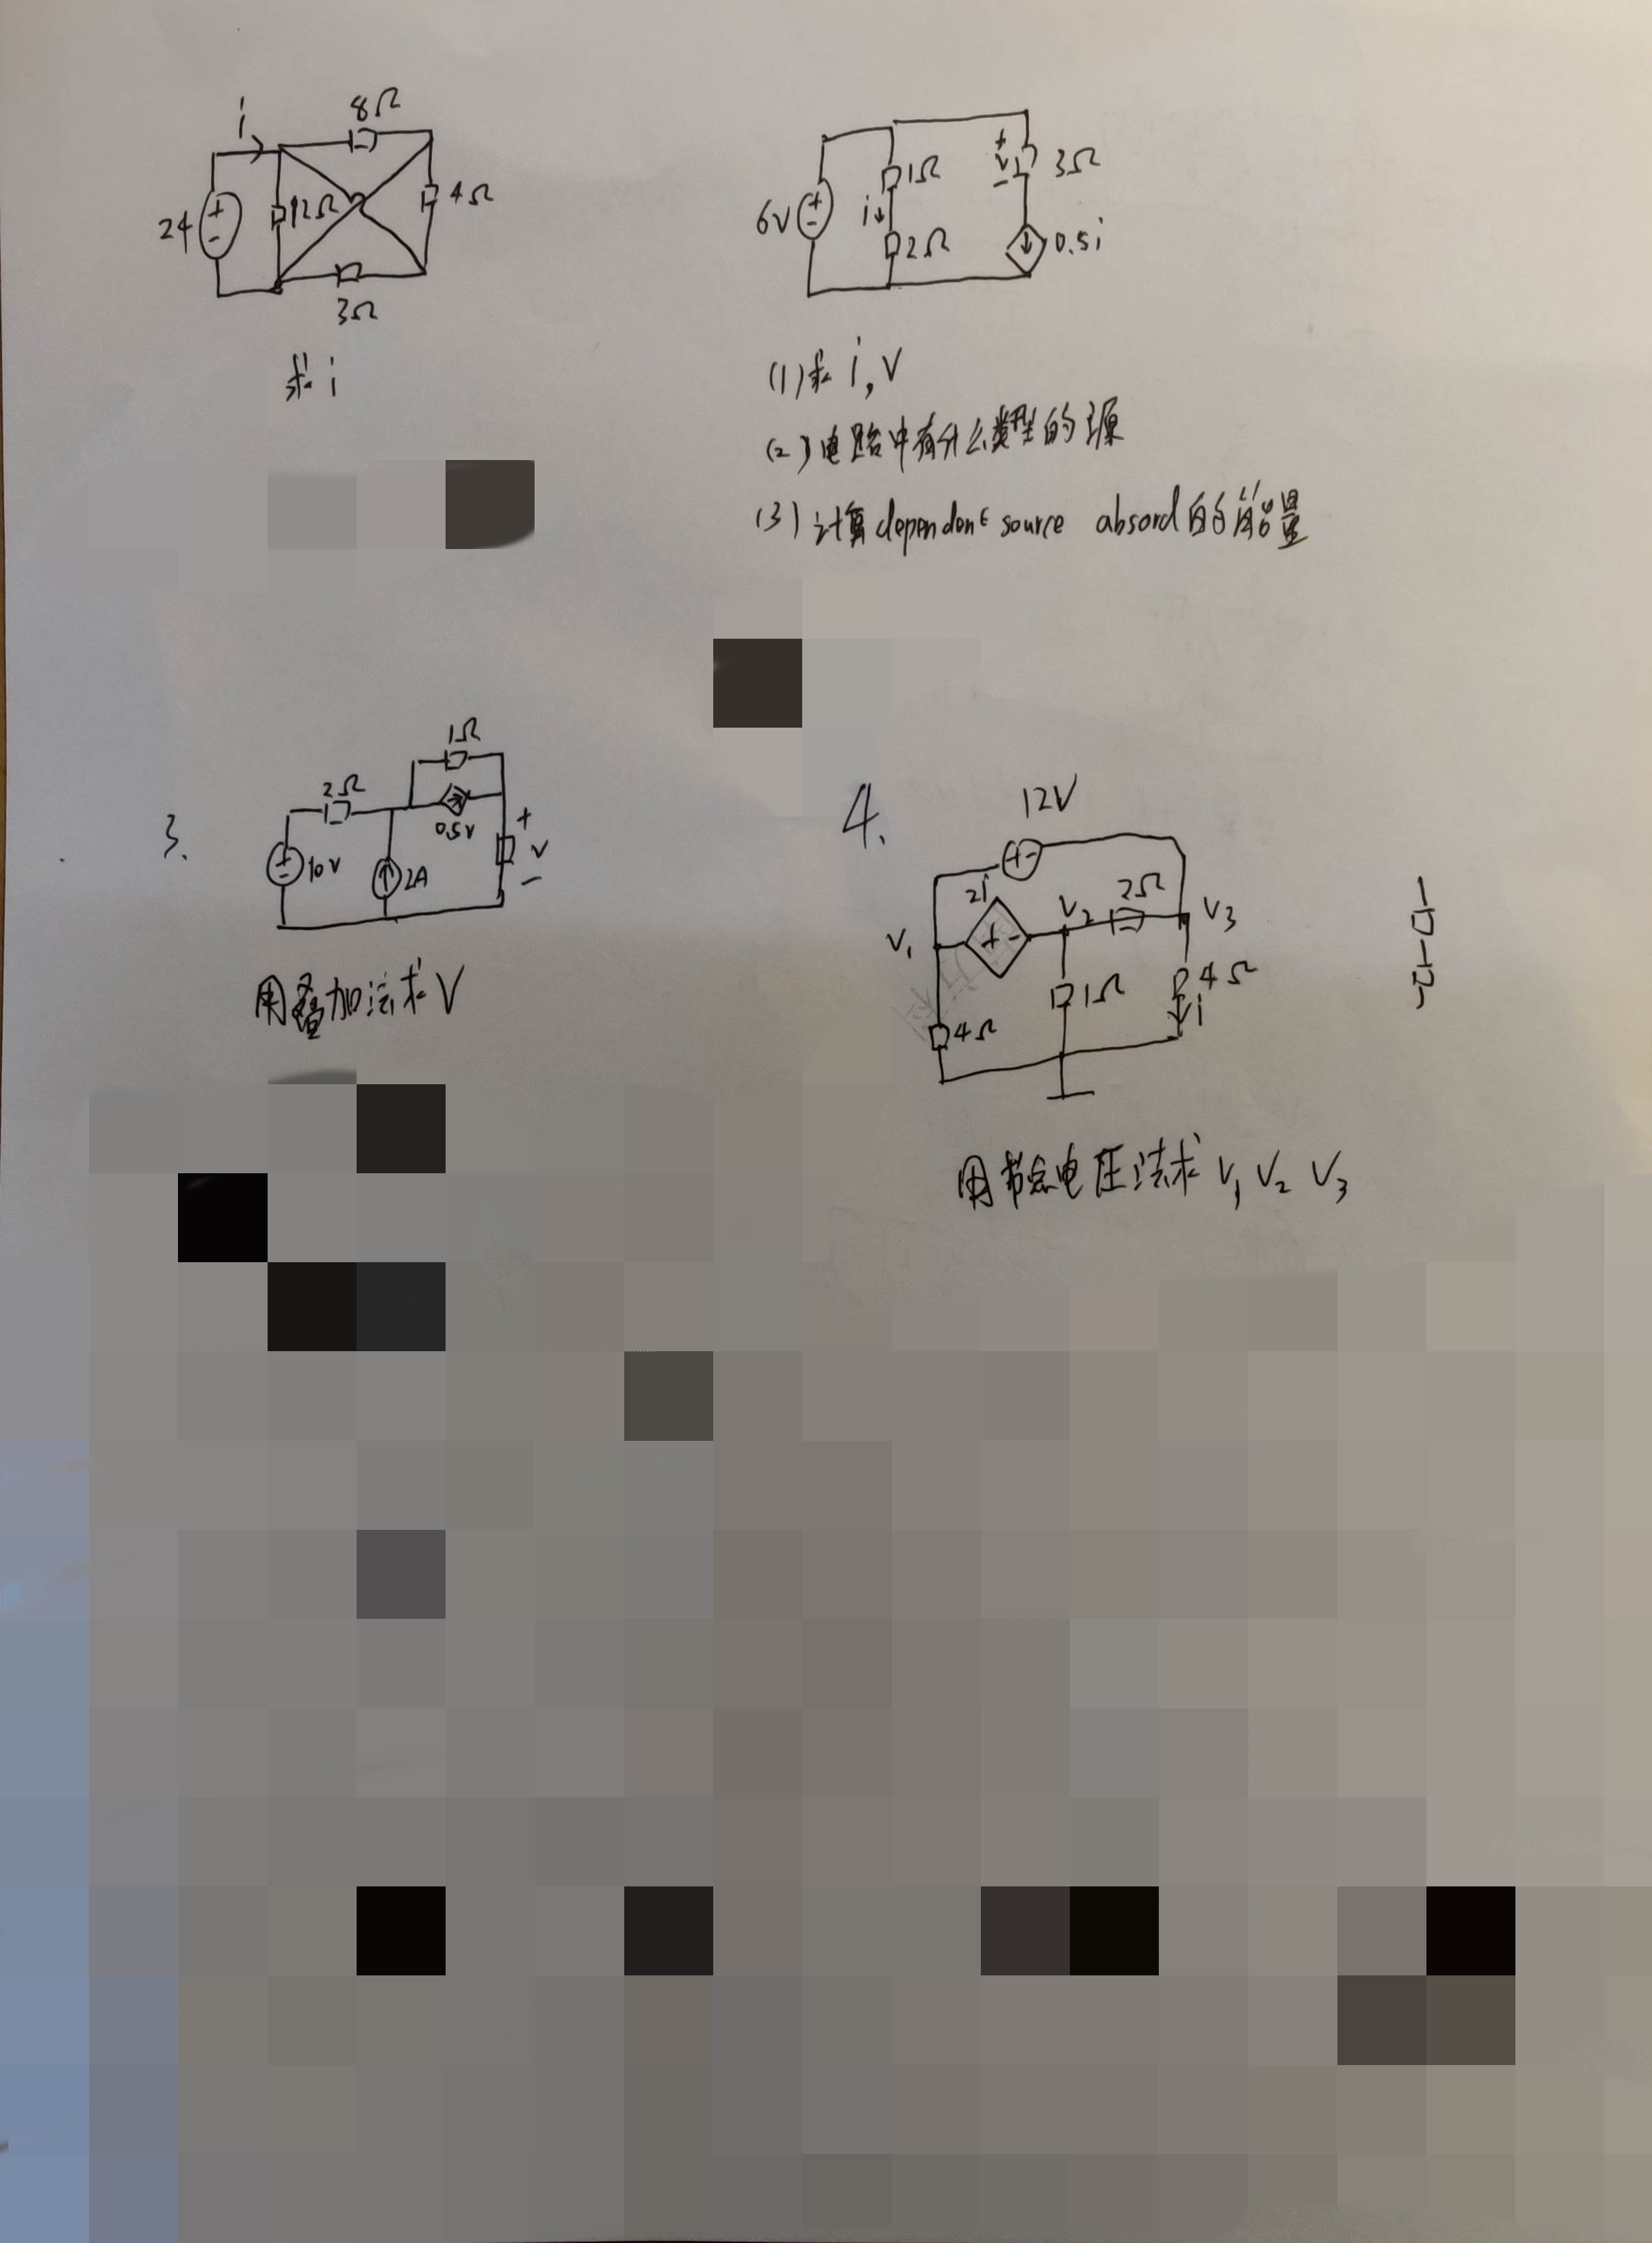 i
8Ω
24
+
-
12Ω
4Ω
3Ω
求 i
6V
+
-
1Ω
i
2Ω
+
V
-
3Ω
0.5i
(1)求 i, V
(2)电路中有什么类型的源
(3)计算dependent source absord的能量
3.
1Ω
2Ω
0.5V
+
-
10V
2A
+
V
-
用叠加法求V
4.
12V
+-
2i
V₁
+-
V₂
2Ω
V₃
4Ω
1Ω
4Ω
i
用节点电压法求 V₁ V₂ V₃